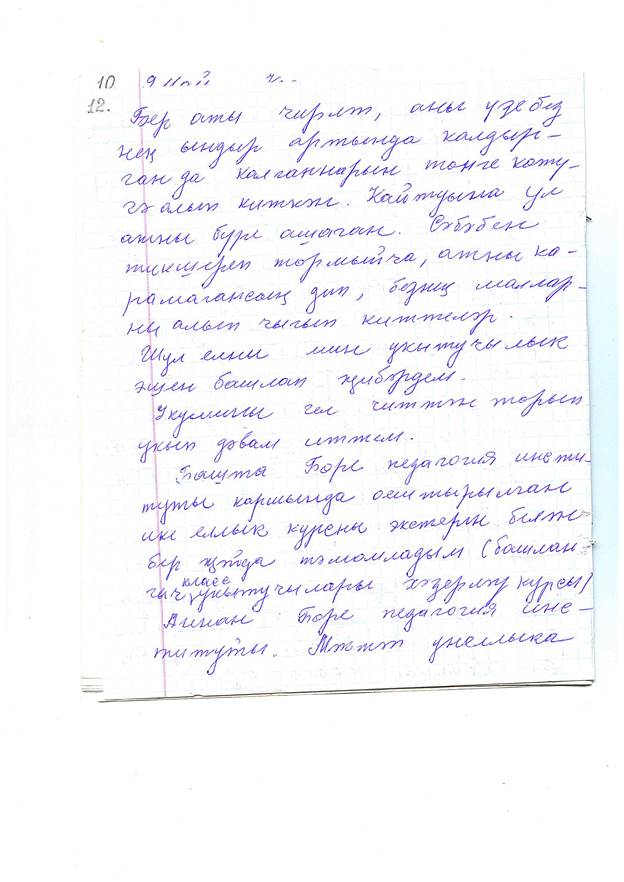 10
12.
Бер аты чирләп, аны үзебез
нең ындыр артында калдыр-
ган да калганнарын төнге көтү-
гә алып киткән. Кайтуына ул
атны бүре ашаган. Сәбәбен
тикшереп тормыйча, атны ка-
рамагансың дип, безнең маллар-
ни алып чыгып киттеләр.
Шул елни мин укытучылык
эшен башлап җибәрдем.
Укуымны гел читтән торып
укып дәвам иттем.
Башта Бөре педагогия инсти-
туты каршында оештырылган
ике еллык курсны экстерн белән
бер җәйдә тәмомладым (башлан-
гыч класс укытучылары хәзерләү курсы)
Аннан Бөре педагогия инс-
титуты.